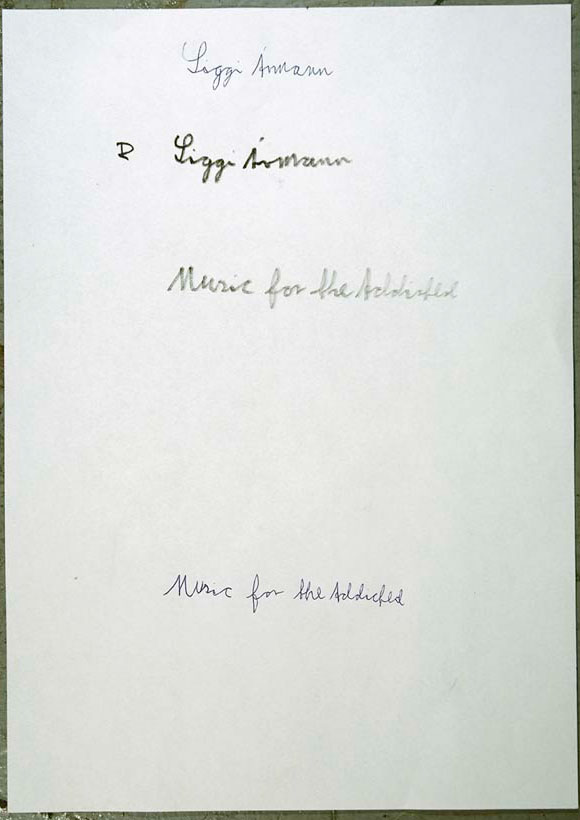 Siggi Ármann
D Siggi Ármann
Music for the Addicted
Music for the Addicted